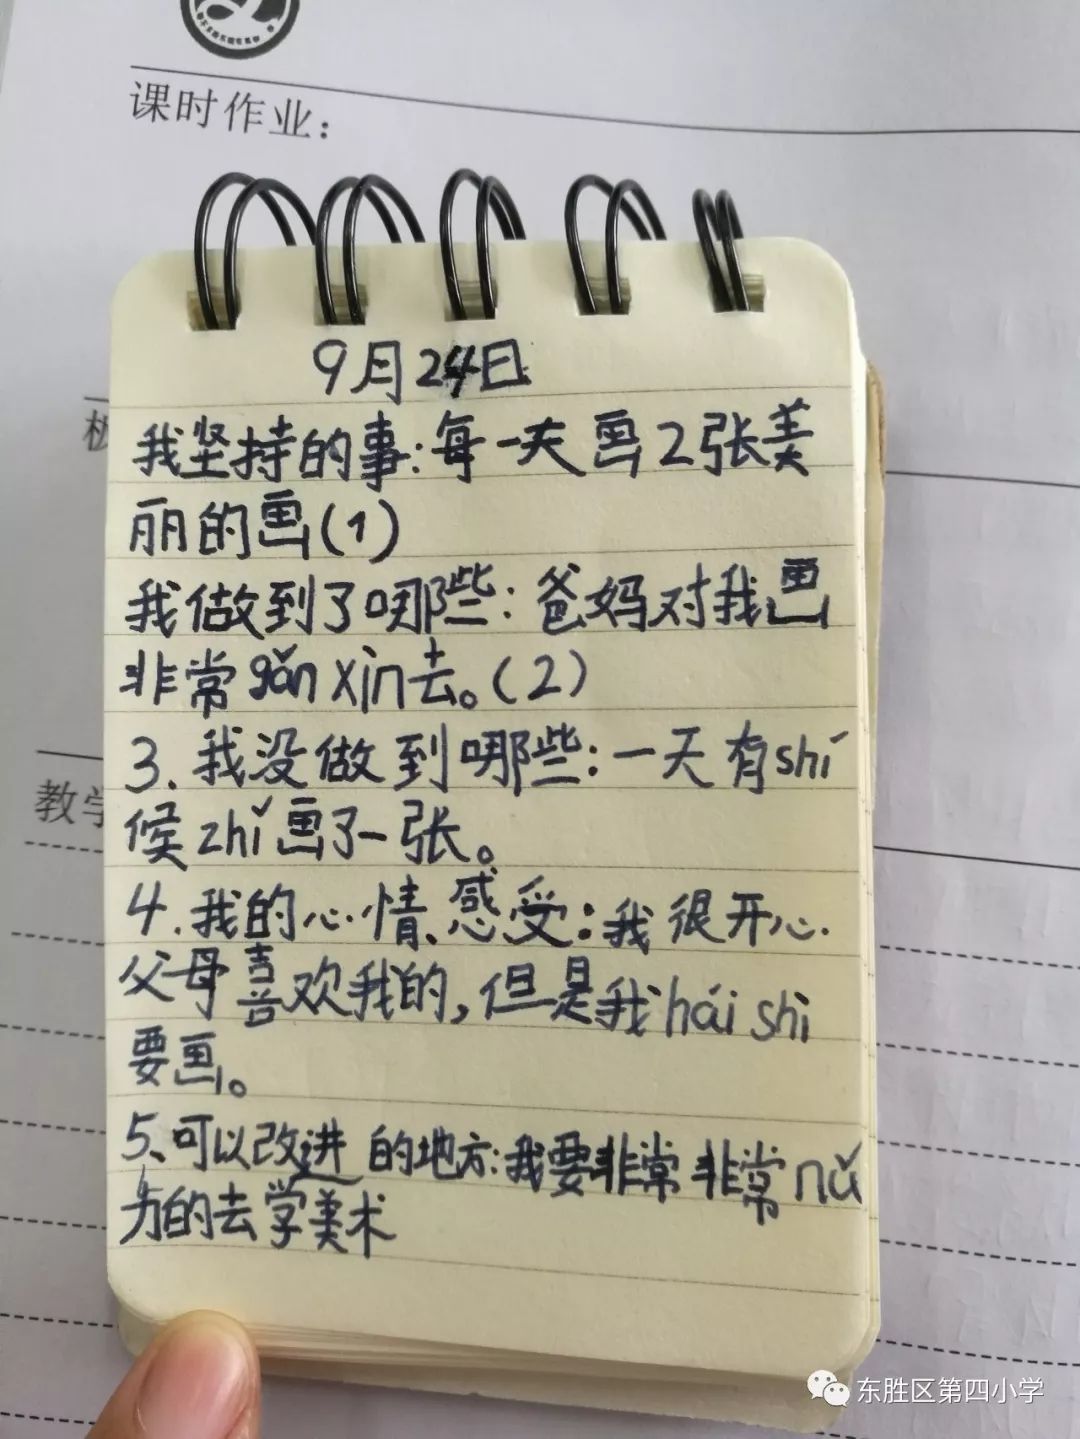 课时作业：
9月24日
我坚持的事:每一天画2张美
丽的画(1)
我做到了哪些:爸妈对我画
非常gǎn xìn去。(2)
3.我没做到哪些:一天有shí
候zhǐ画了一张。
4.我的心情、感受:我很开心.
父母喜欢我的,但是我hái shì
要画。
5、可以改进的地方:我要非常非常nǔ
力的去学美术
教学
东胜区第四小学